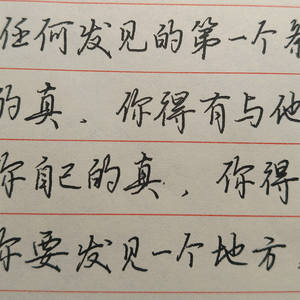 任何发见的第一个条
的真，你得有与他
你自己的真，你得
你要发见一个地方，